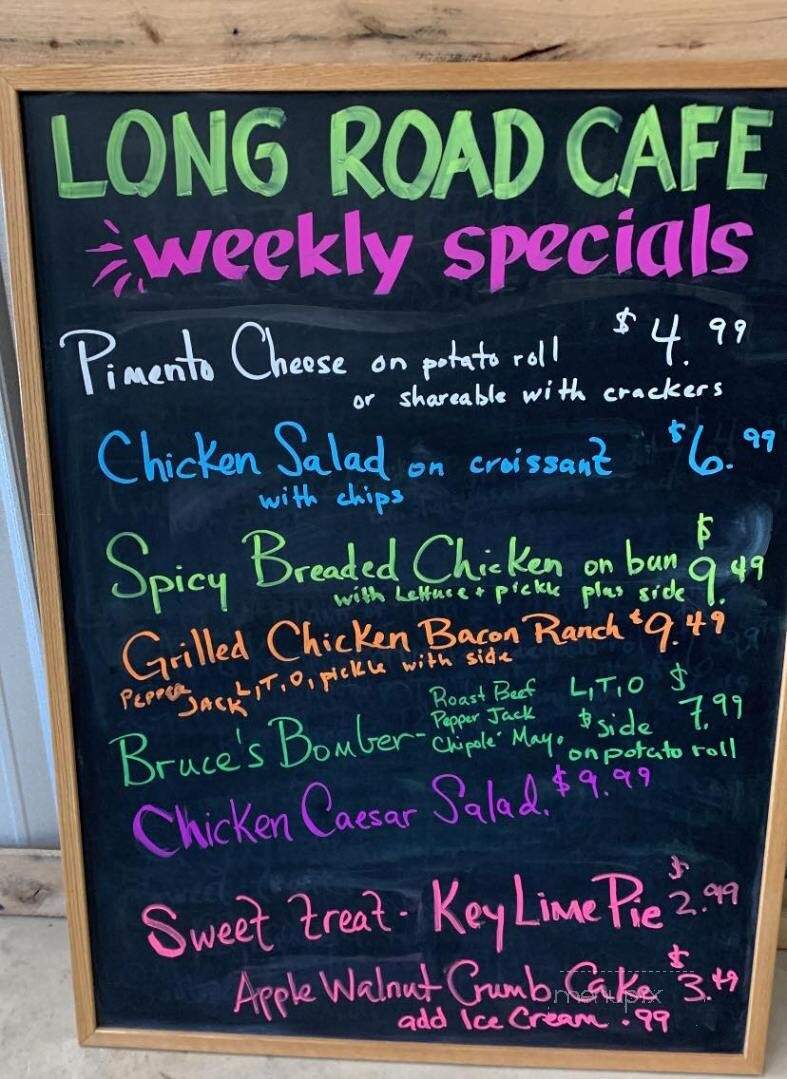 LONG ROAD CAFE
weekly specials
Pimento Cheese on potato roll $4.99
or shareable with crackers
Chicken Salad on croissant $6.99
with chips
Spicy Breaded Chicken on bun $9.49
with Lettuce + pickle plus side
Grilled Chicken Bacon Ranch $9.49
PEPPER JACK L,T,O, pickle with side
Bruce's Bomber - Roast Beef L,T,O $7.99
Pepper Jack $ side
Chipole' Mayo. on potato roll
Chicken Caesar Salad. $9.99
Sweet treat - Key Lime Pie $2.99
Apple Walnut Crumb Cake $3.49
add Ice Cream .99
menupix